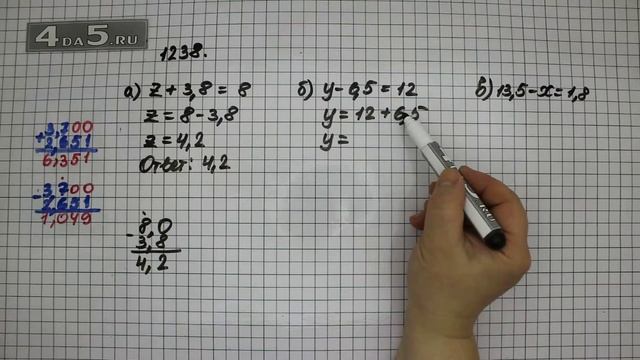 4DA5.RU
1238.
а) z + 3,8 = 8
z = 8 - 3,8
z = 4,2
Ответ: 4,2
б) y - 6,5 = 12
y = 12 + 6,5
y =
в) 13,5 - x = 1,8
+ 3,700
2,651
6,351
- 3,700
2,651
1,049
- 8,0
3,8
4,2